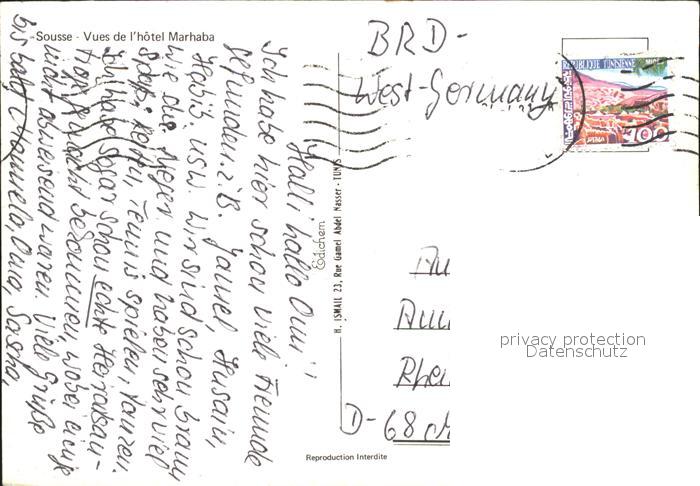 Sousse - Vues de l'hôtel Marhaba
Halli hallo Omi!
Ich habe hier schon viele Freunde
gefunden. z.B. Jamel, Husain,
Habib usw. Wir sind schon braun
wie die Neger und haben sehr viel
Spaß: reiten, Tennis spielen, tanzen.
Ich habe sogar schon echte Heiratsan-
träge bekommen, wobei einige
nicht abweisend waren. Viele Grüße
bis bald Manuela, Oma, Sascha,
©dichem
H. ISMAIL 23, Rue Gamel Abdel Nasser - TUNIS
Reproduction Interdite
BRD-
West-Germany
REPUBLIQUE TUNISIENNE
Au
Rhei
D-68
privacy protection
Datenschutz